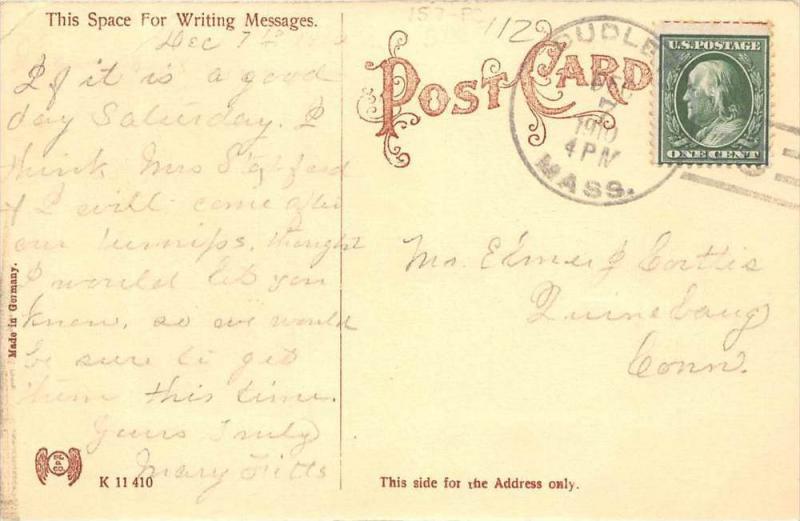 This Space For Writing Messages.
Dec 7th
If it is a good
day Saturday. I
think Mrs Stafford
& I will come after
our turnips, thought
I would let you
know, so we would
be sure to get
them this time.
Yours Truly
Mary Fitts
Made in Germany.
K 11 410
112
POST CARD
DUDLE
DEC
7
1910
4 PM
MASS.
U.S. POSTAGE
ONE CENT
Mr. Elmer J Cortis
Quinebaug
Conn.
This side for the Address only.